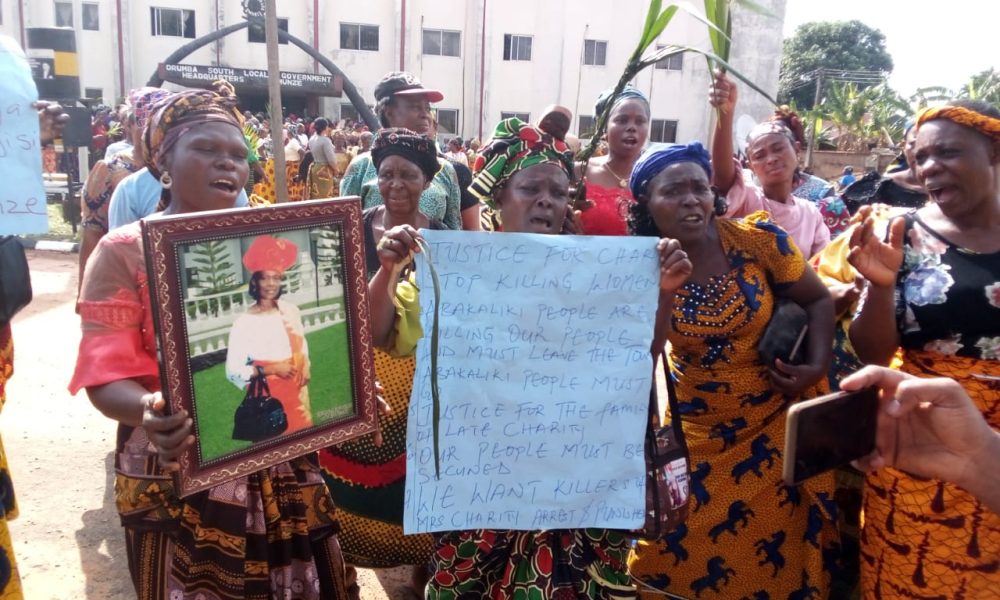 ORUMBA SOUTH LOCAL GOVERNMENT
HEADQUARTERS
JUSTICE FOR CHAR
STOP KILLING WOMEN
ABAKALIKI PEOPLE ARE
KILLING OUR PEOPLE
AND MUST LEAVE THE TOW
ABAKALIKI PEOPLE MUST
JUSTICE FOR THE FAMI
OF LATE CHARITY
OUR PEOPLE MUST BE
SECUNED
WE WANT KILLERS
MRS CHARITI ARREST & PUNISHE